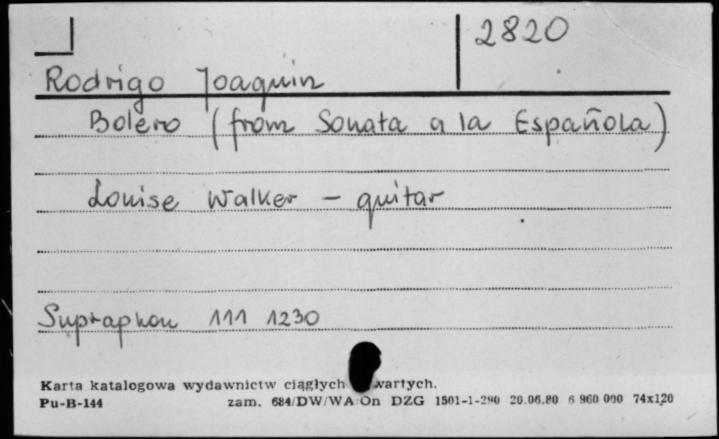 2820
Rodrigo Joaquin
Bolero (from Sonata a la Española)
Louise Walker – guitar
Supraphon 111 1230
Karta katalogowa wydawnictw ciągłych wartych.
Pu-B-144 zam. 684/DW/WA/On DZG 1501-1-290 20.06.80 6 960 000 74x120